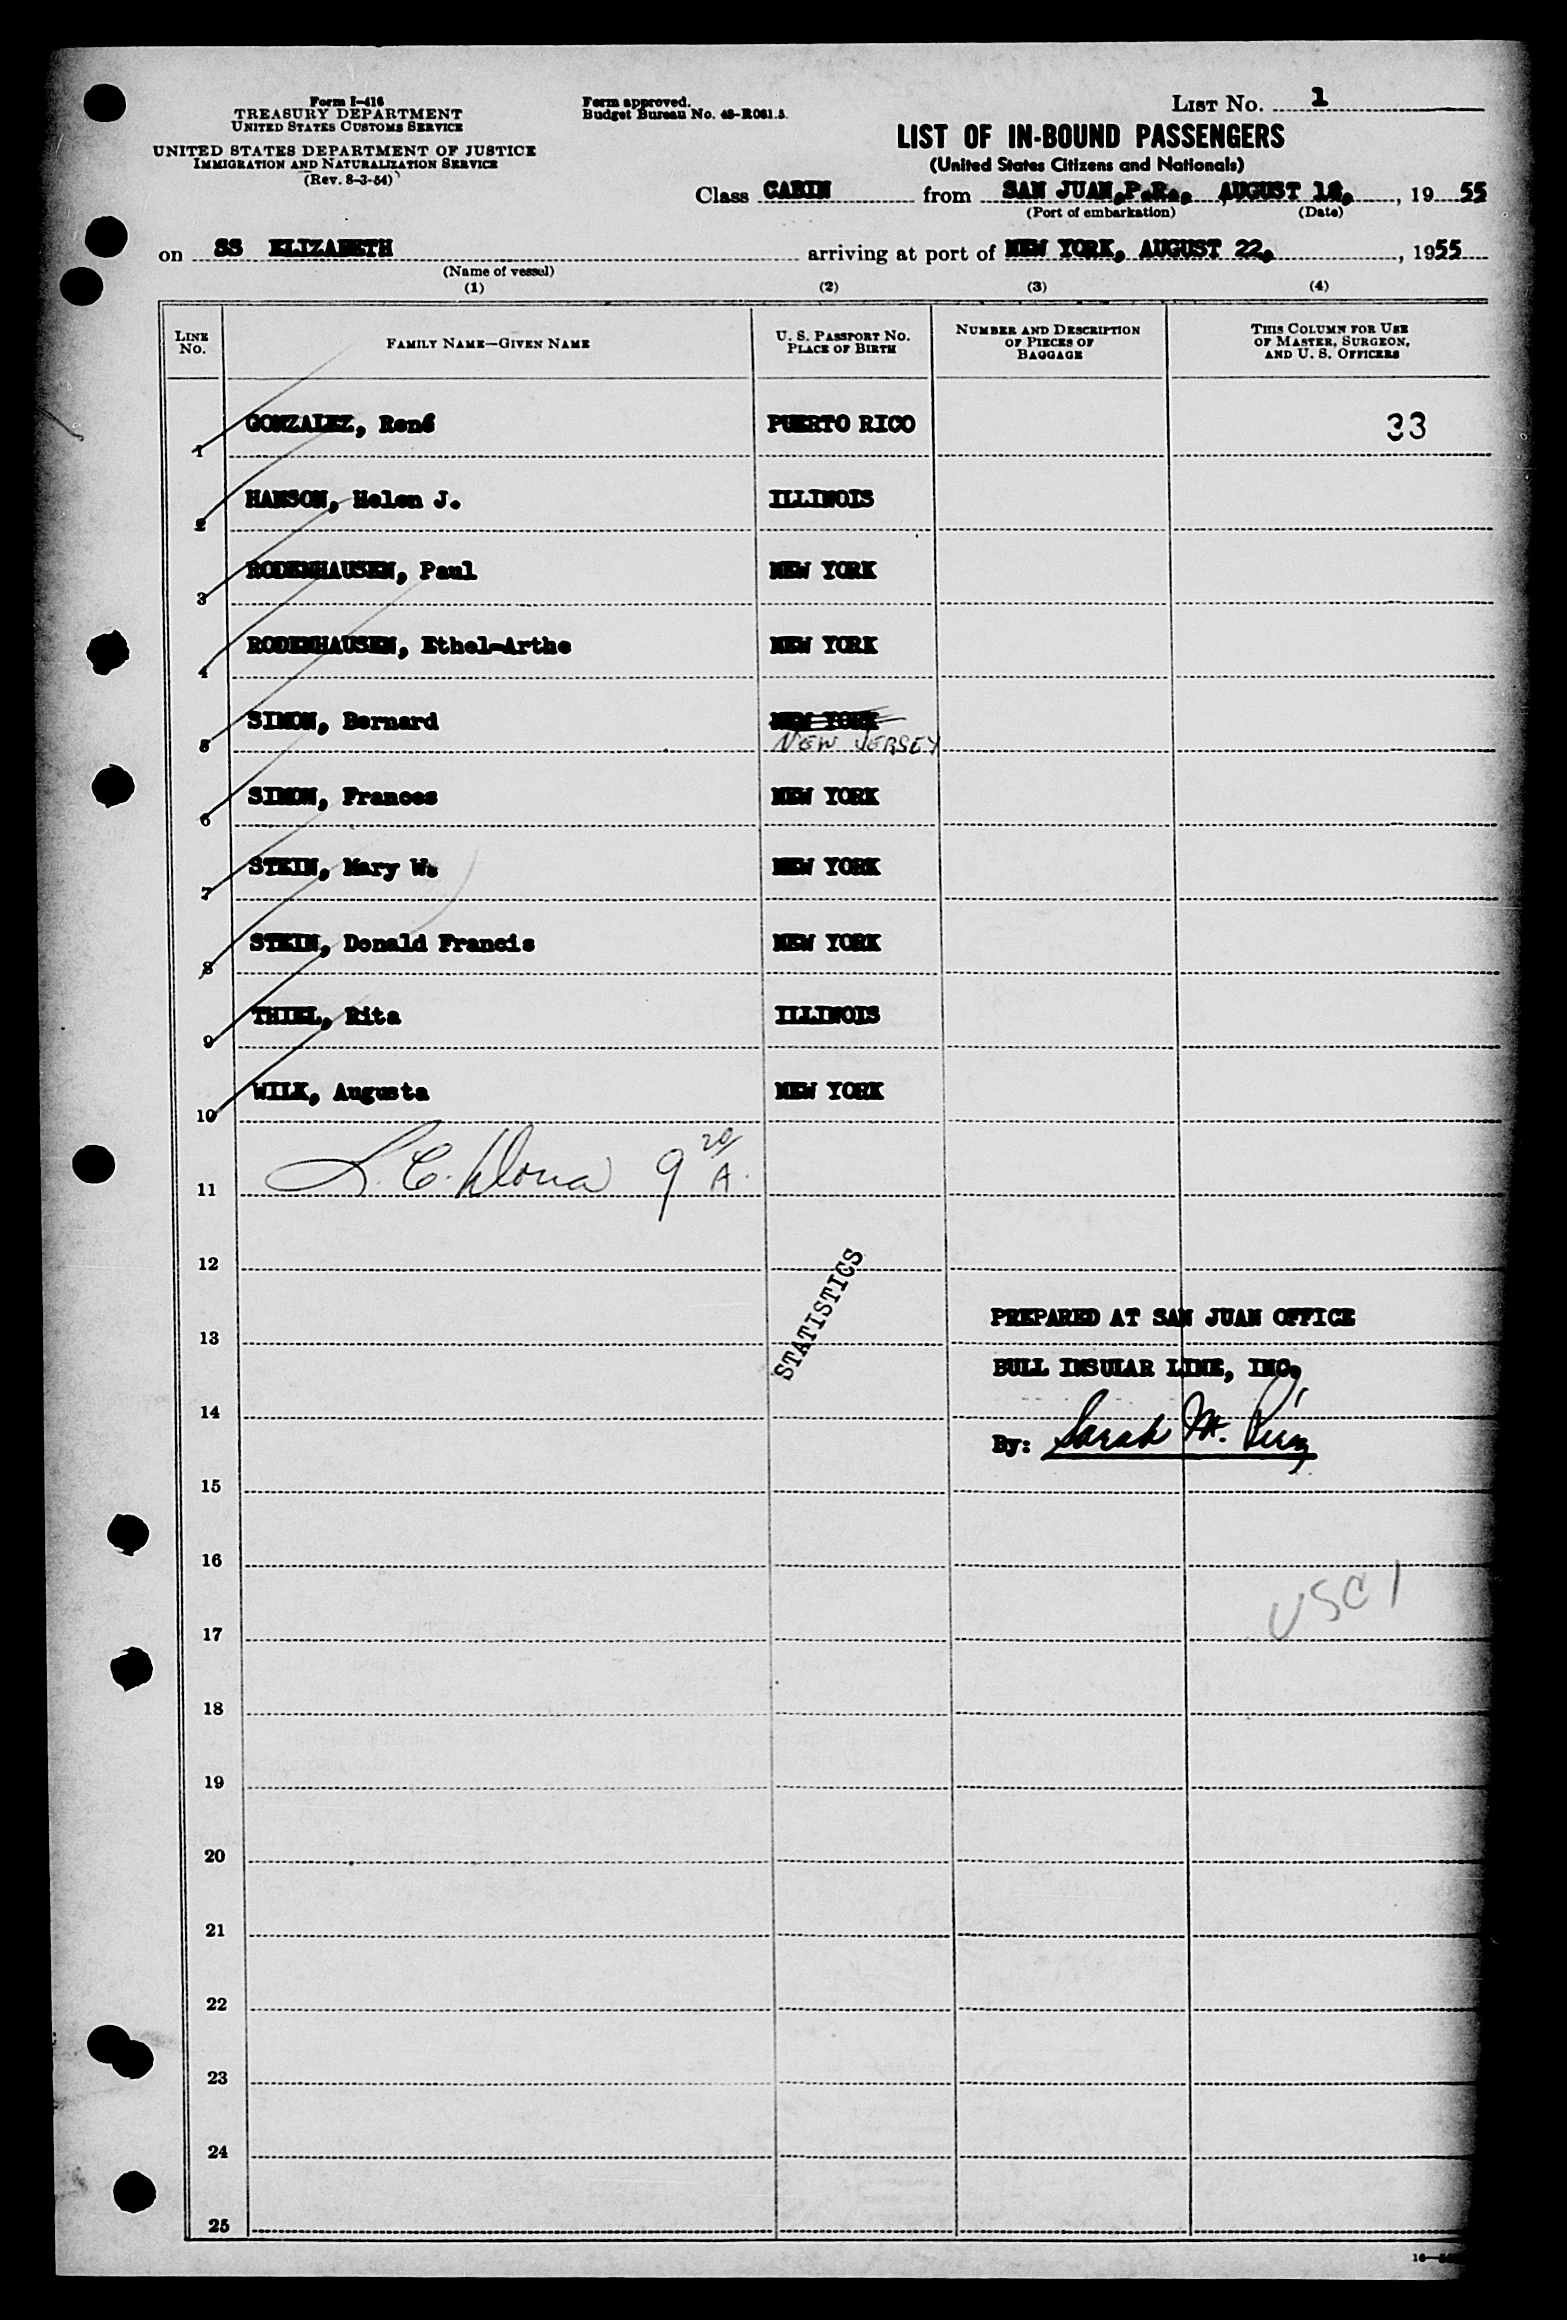 Form I-416
TREASURY DEPARTMENT
UNITED STATES CUSTOMS SERVICE
UNITED STATES DEPARTMENT OF JUSTICE
IMMIGRATION AND NATURALIZATION SERVICE
(Rev. 8-3-54)
Form approved.
Budget Bureau No. 43-R081.5.
LIST NO. 1
LIST OF IN-BOUND PASSENGERS
(United States Citizens and Nationals)
Class CABIN from SAN JUAN, P.R., AUGUST 18, 1955
(Port of embarkation) (Date)
on SS ELIZABETH arriving at port of NEW YORK, AUGUST 22, 1955
(Name of vessel)
(1) (2) (3) (4)
LINE NO. FAMILY NAME—GIVEN NAME U. S. PASSPORT NO. PLACE OF BIRTH NUMBER AND DESCRIPTION OF PIECES OF BAGGAGE THIS COLUMN FOR USE OF MASTER, SURGEON, AND U. S. OFFICERS
1 GONZALEZ, René PUERTO RICO 33
2 HANSON, Helen J. ILLINOIS
3 RODENHAUSEN, Paul NEW YORK
4 RODENHAUSEN, Ethel-Arthe NEW YORK
5 SIMON, Bernard NEW YORK
NEW JERSEY
6 SIMON, Frances NEW YORK
7 STEIN, Mary W. NEW YORK
8 STEIN, Donald Francis NEW YORK
9 THIEL, Rita ILLINOIS
10 WILK, Augusta NEW YORK
11 9 20/ A.
12
STATISTICS
PREPARED AT SAN JUAN OFFICE
13
BULL INSULAR LINE, INC.
14
By: Sarah M.
15
16
USC 1
17
18
19
20
21
22
23
24
25